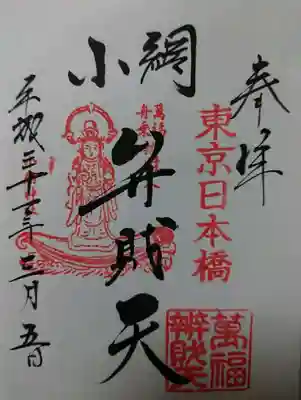 奉拝
東京日本橋
小網
弁財天
萬福
舟乗
萬福
辨財天
平成三十年三月五日